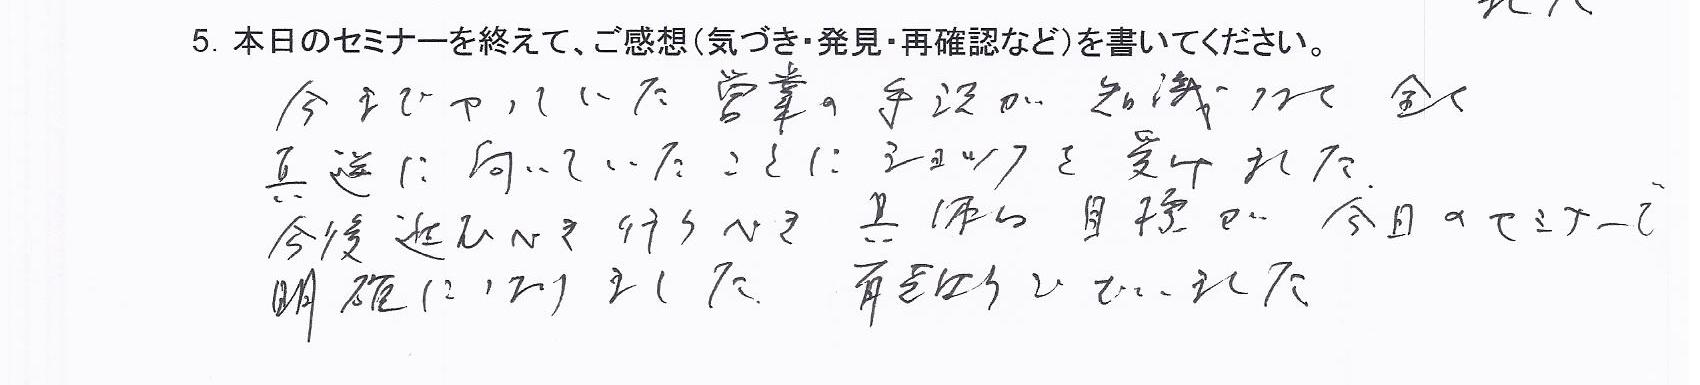 5. 本日のセミナーを終えて、ご感想(気づき・発見・再確認など)を書いてください。
今までやっていた営業の手法が 知識なく全く
真逆に向いていたことにショックを受けました。
今後進むべき 行うべき 具体的目標が 今日のセミナーで
明確になりました。 有難うございました